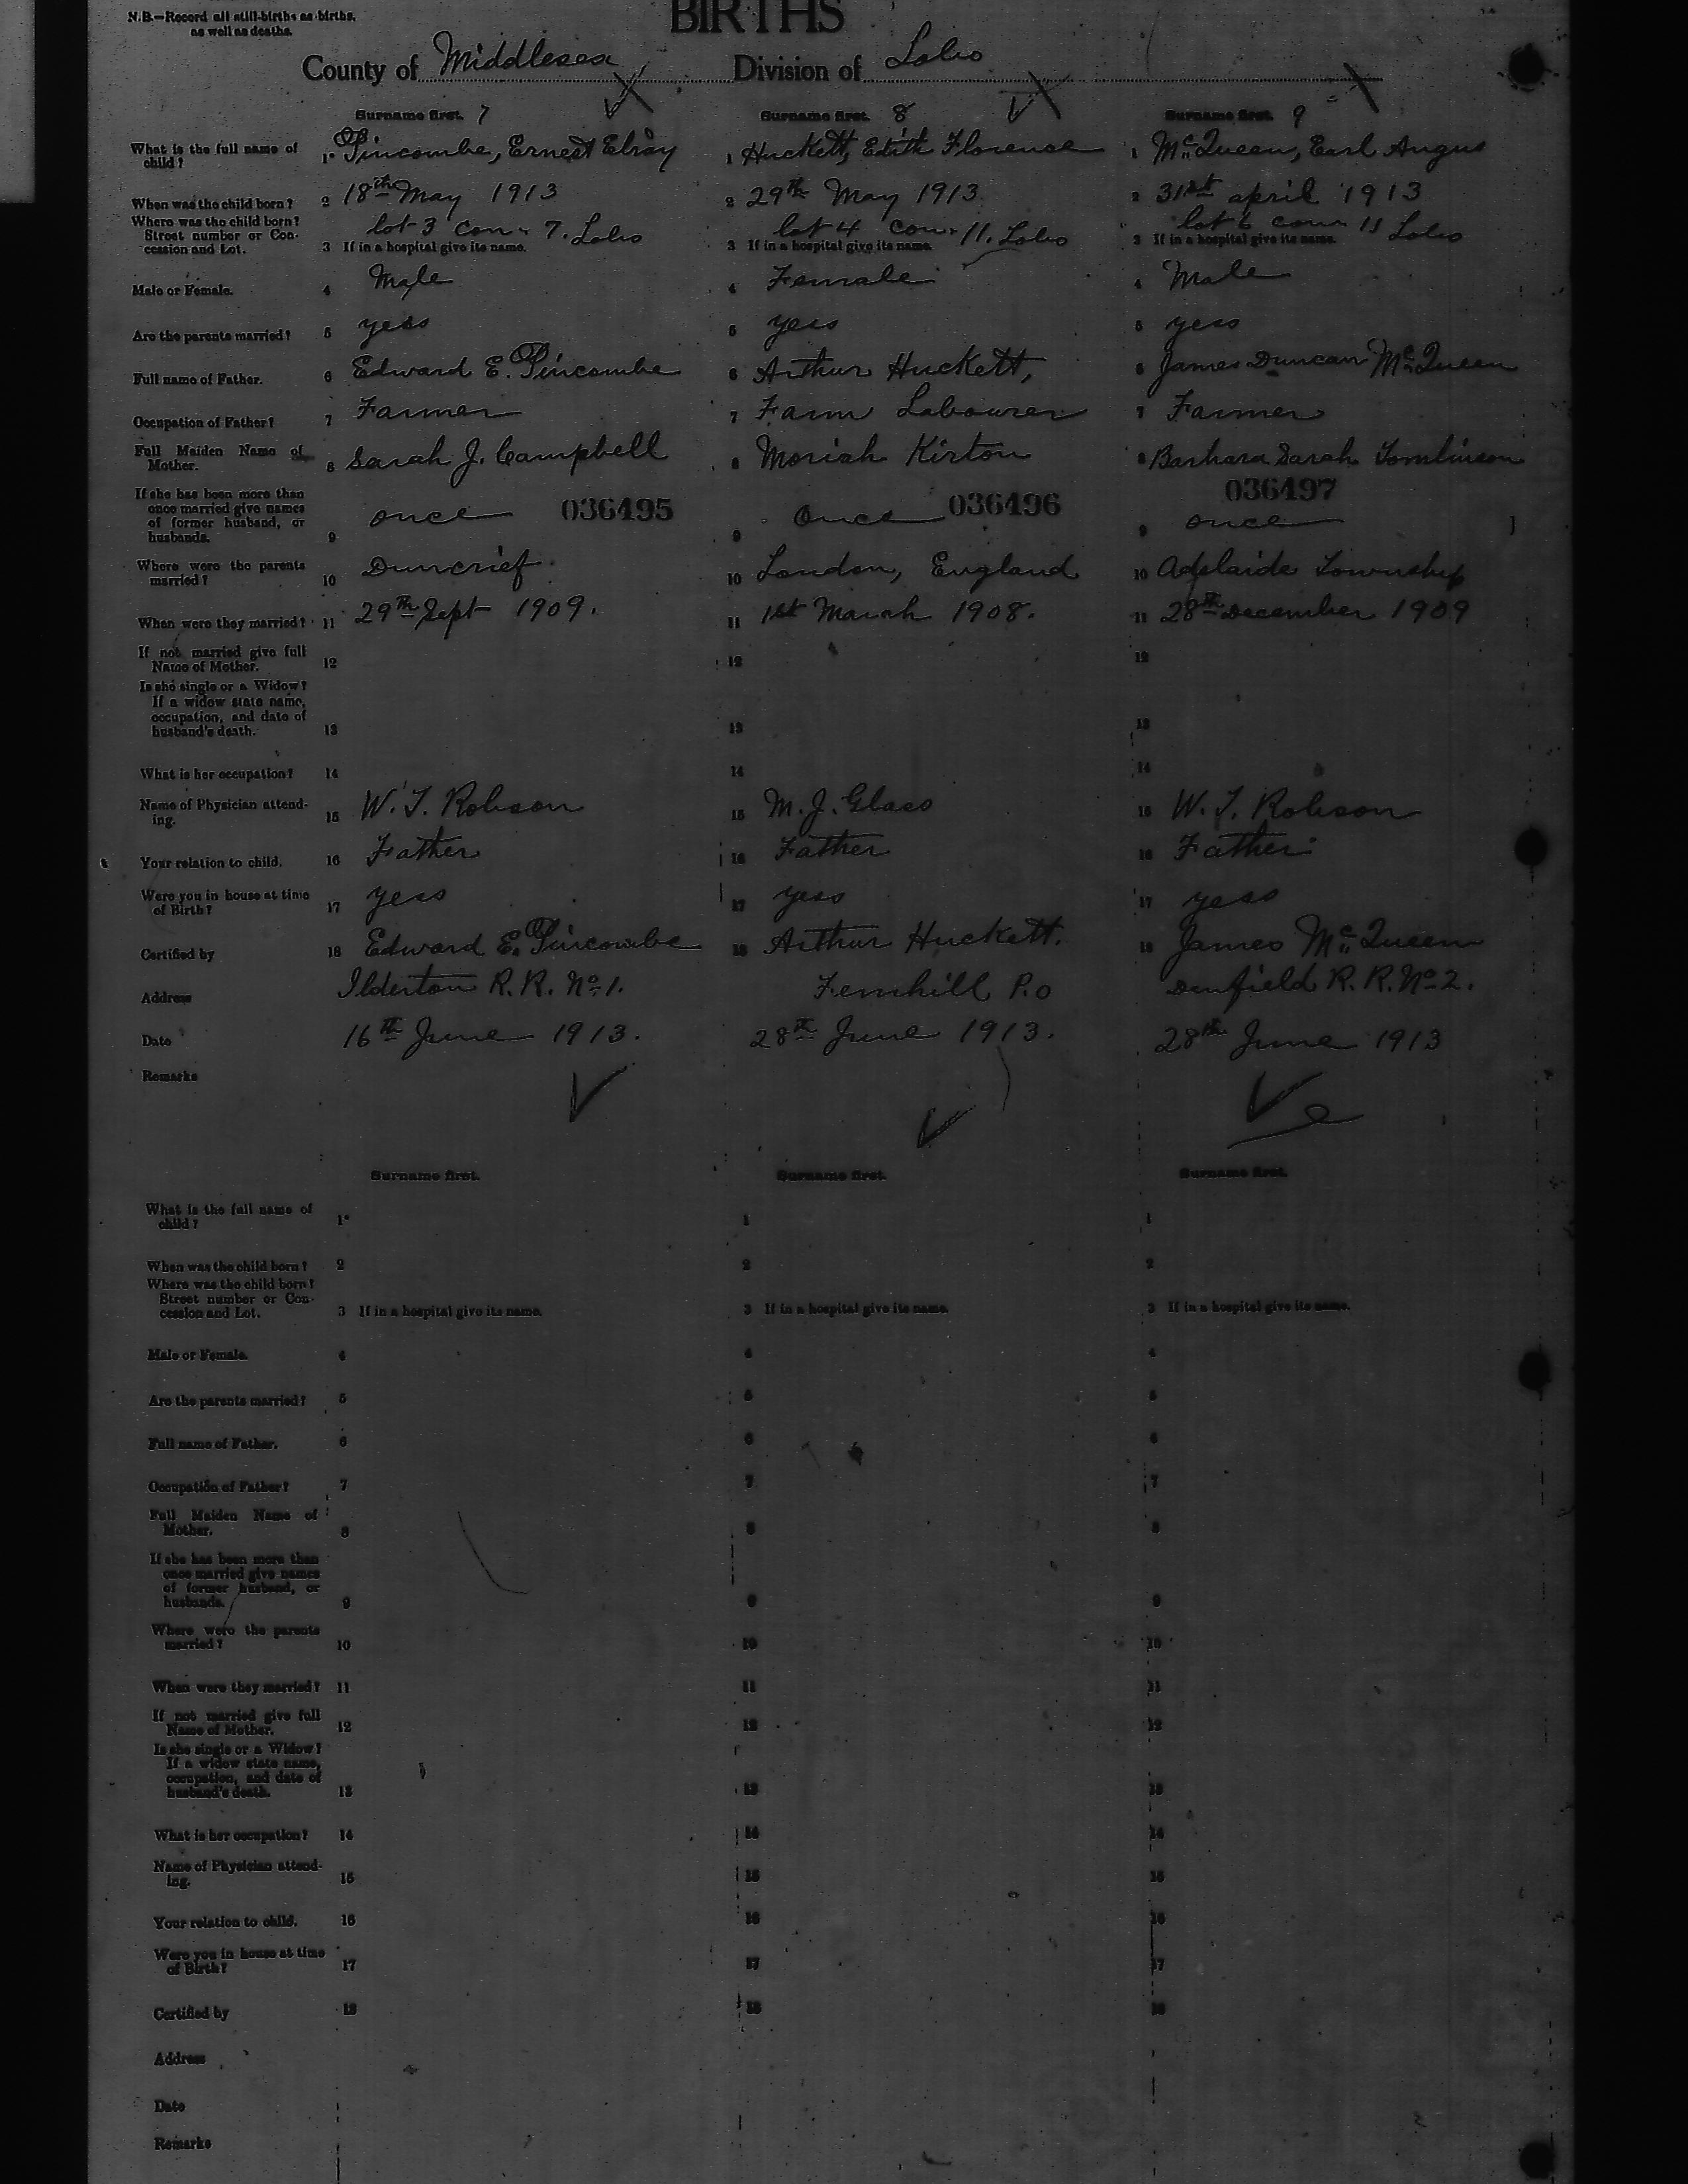 N.B.—Record all still-births as births,
as well as deaths.
BIRTHS
County of Middlesex Division of Lobo
Surname first. 7 Surname first. 8 Surname first. 9
What is the full name of
child? 1 Pincombe, Ernest Elray 1 Huckett, Edith Florence 1 McQueen, Earl Angus
When was the child born? 2 18th May 1913 2 29th May 1913 2 31st april 1913
Where was the child born?
Street number or Con- lot 3 con 7. Lobo lot 4 con 11. Lobo lot 6 con 11 Lobo
cession and Lot. 3 If in a hospital give its name. 3 If in a hospital give its name. 3 If in a hospital give its name.
Male or Female. 4 Male 4 Female 4 Male
Are the parents married? 5 yess 5 yess 5 yess
Full name of Father. 6 Edward E. Pincombe 6 Arthur Huckett, 6 James Duncan McQueen
Occupation of Father? 7 Farmer 7 Farm Labourer 7 Farmer
Full Maiden Name of
Mother. 8 Sarah J. Campbell 8 Moriah Kirton 8 Barbara Sarah Tomlinson
If she has been more than
once married give names
of former husband, or
husbands. 9 once 036495 9 Once 036496 9 once 036497
Where were the parents
married? 10 Duncrief. 10 London, England 10 Adelaide Township
When were they married? 11 29th Sept 1909. 11 1st March 1908. 11 28th December 1909
If not married give full
Name of Mother. 12 12 12
Is she single or a Widow?
If a widow state name,
occupation, and date of
husband's death. 13 13 13
What is her occupation? 14 14 14
Name of Physician attend-
ing. 15 W. T. Robson 15 M. J. Glass 15 W. T. Robson
Your relation to child. 16 Father 16 Father 16 Father
Were you in house at time
of Birth? 17 yess 17 yess 17 yess
Certified by 18 Edward E. Pincombe 18 Arthur Huckett. 18 James McQueen
Address Ilderton R. R. No 1. Fernhill P.O Denfield R. R. No 2.
Date 16th June 1913. 28th June 1913. 28th June 1913
Remarks
Surname first. Surname first. Surname first.
What is the full name of
child? 1 1 1
When was the child born? 2 2 2
Where was the child born?
Street number or Con-
cession and Lot. 3 If in a hospital give its name. 3 If in a hospital give its name. 3 If in a hospital give its name.
Male or Female. 4 4 4
Are the parents married? 5 5 5
Full name of Father. 6 6 6
Occupation of Father? 7 7 7
Full Maiden Name of
Mother. 8 8 8
If she has been more than
once married give names
of former husband, or
husbands. 9 9 9
Where were the parents
married? 10 10 10
When were they married? 11 11 11
If not married give full
Name of Mother. 12 12 12
Is she single or a Widow?
If a widow state name,
occupation, and date of
husband's death. 13 13 13
What is her occupation? 14 14 14
Name of Physician attend-
ing. 15 15 15
Your relation to child. 16 16 16
Were you in house at time
of Birth? 17 17 17
Certified by 18 18 18
Address
Date
Remarks